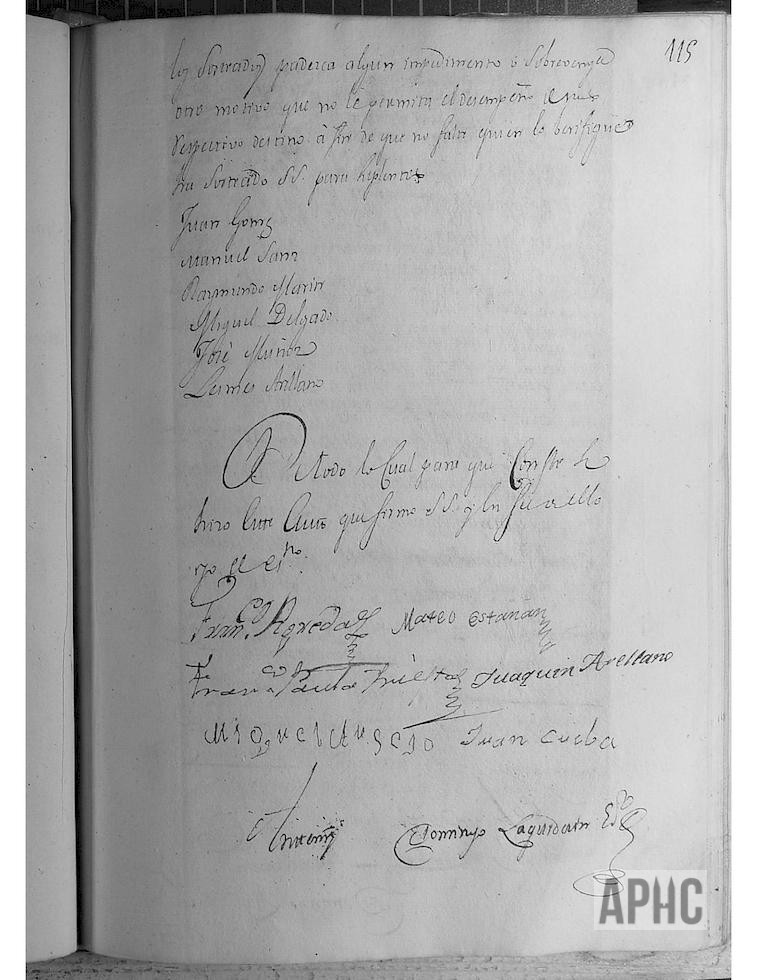 115
los Sorteados padezca algun impedimento o Sobrevenga
otro motivo que no le permita el desempeño de su
respectivo destino. à fin de que no falte quien lo berifique
ha Sorteado SS. para Suplentes
Juan Gomez
Manuel Sanz
Raymundo Marin
Miguel Delgado
José Muñoz
Arellano
De todo lo Cual para que Conste se
hizo Este Auto que firmo SS. y en fee de ello
yo el esno.
Franco. Agreda Mateo estañan
Franco. Paula Juaquin Arellano
Miguel Ausejo Juan cueba
Antemi Domingo Esno
APHC